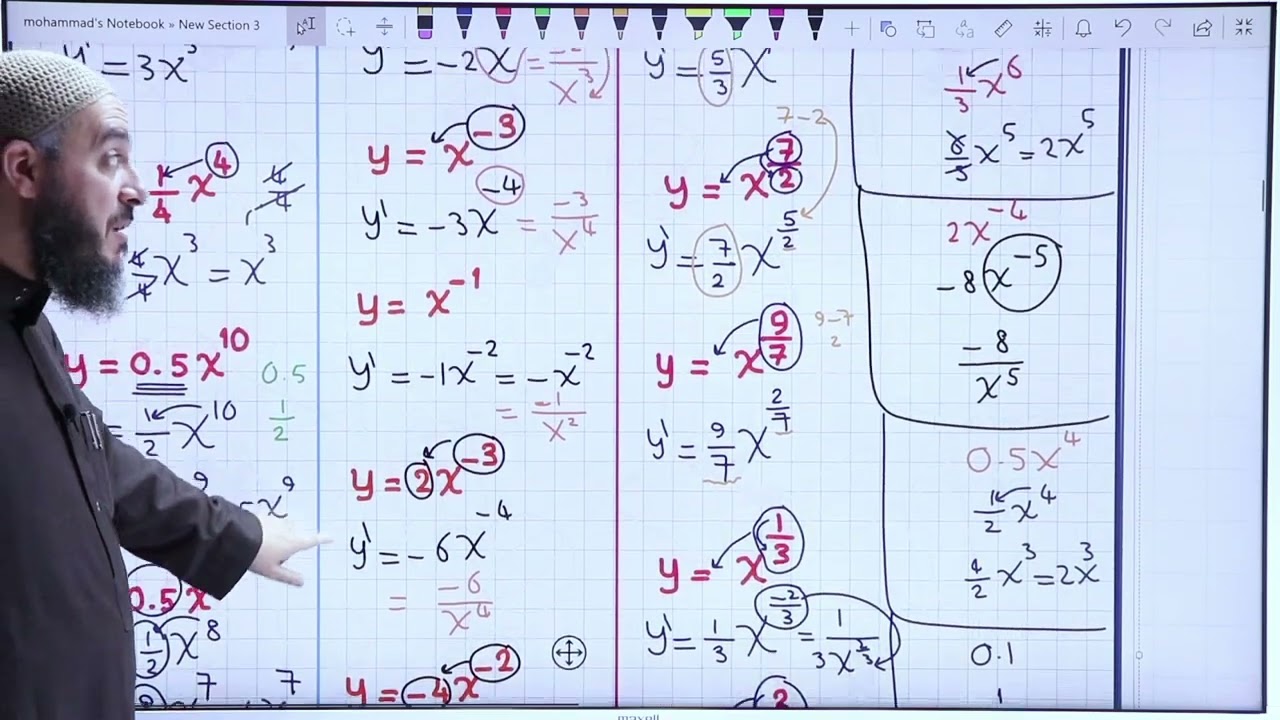 mohammad's Notebook » New Section 3
y' = 3x³
1/4 x⁴ 4/4
4/4 x³ = x³
y = 0.5x¹⁰ 0.5
= 1/2 x¹⁰ 1/2
0.5x
1/2 x⁸
y' = -2x = -2/x³
y = x⁻³
y' = -3x⁻⁴ = -3/x⁴
y = x⁻¹
y' = -1x⁻² = -x⁻²
= -1/x²
y = 2x⁻³
y' = -6x⁻⁴
= -6/x⁴
y = -4x⁻²
y' = 5/3 x
7-2
y = x^7/2
y' = 7/2 x^5/2
y = x^9/7 9-7/2
y' = 9/7 x^2/7
y = x^1/3
y' = 1/3 x^-2/3 = 1/3x^2/3
2
1/3 x⁶
6/3 x⁵ = 2x⁵
2x⁻⁴
-8x⁻⁵
-8/x⁵
0.5x⁴
1/2 x⁴
4/2 x³ = 2x³
0.1
1
maxell